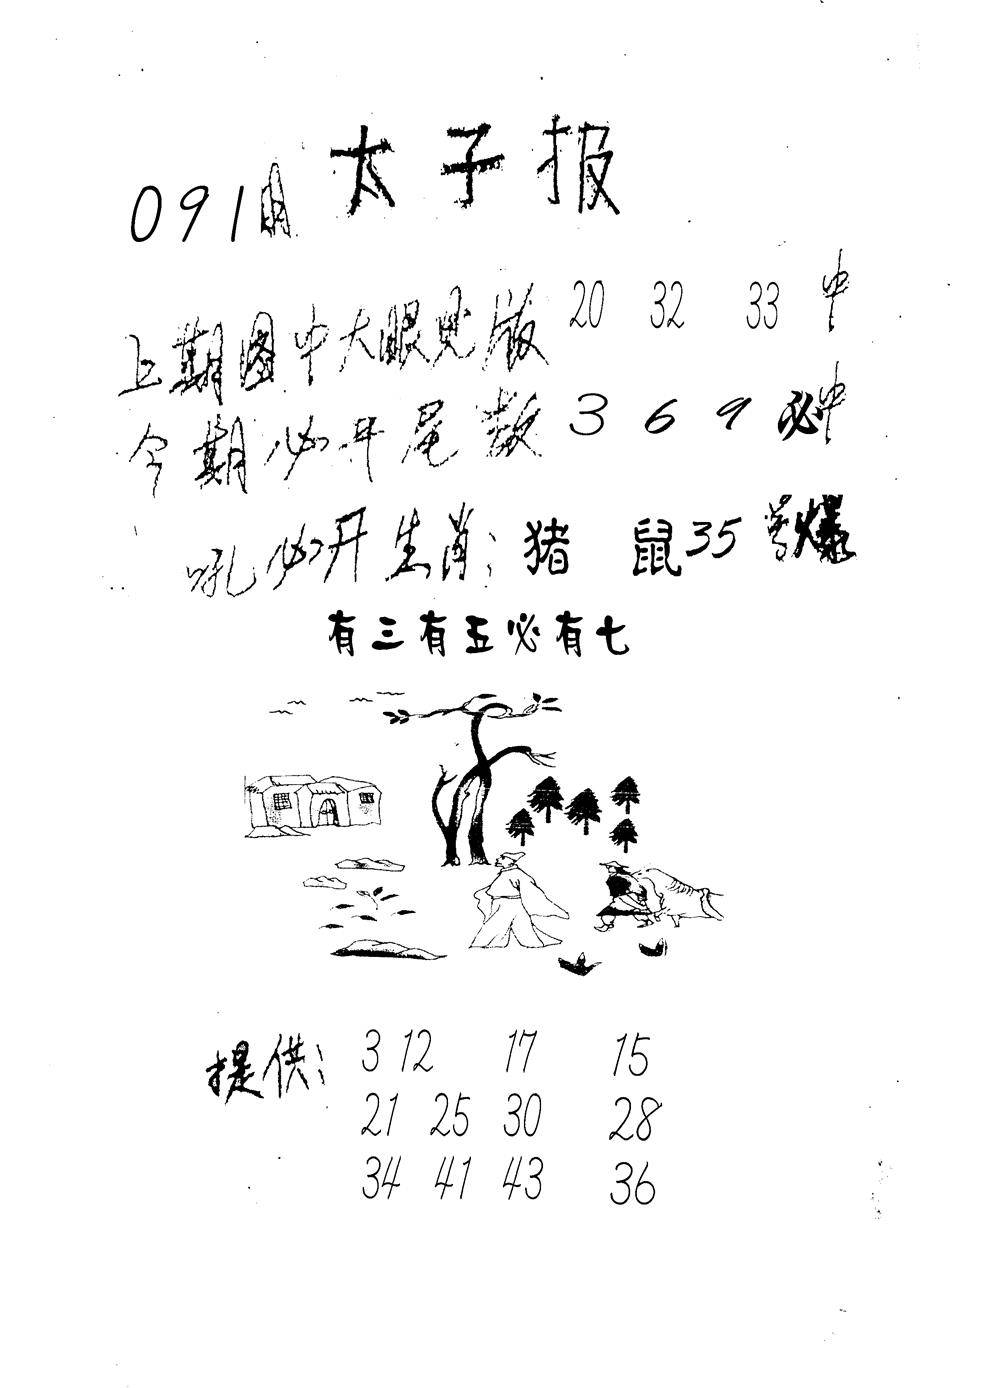 太子报
091期
上期图中大眼见版 20 32 33 中
今期必开尾数 3 6 9 必中
吼必开生肖: 猪 鼠 35 号爆
有三有五必有七
提供: 3 12 17 15
21 25 30 28
34 41 43 36